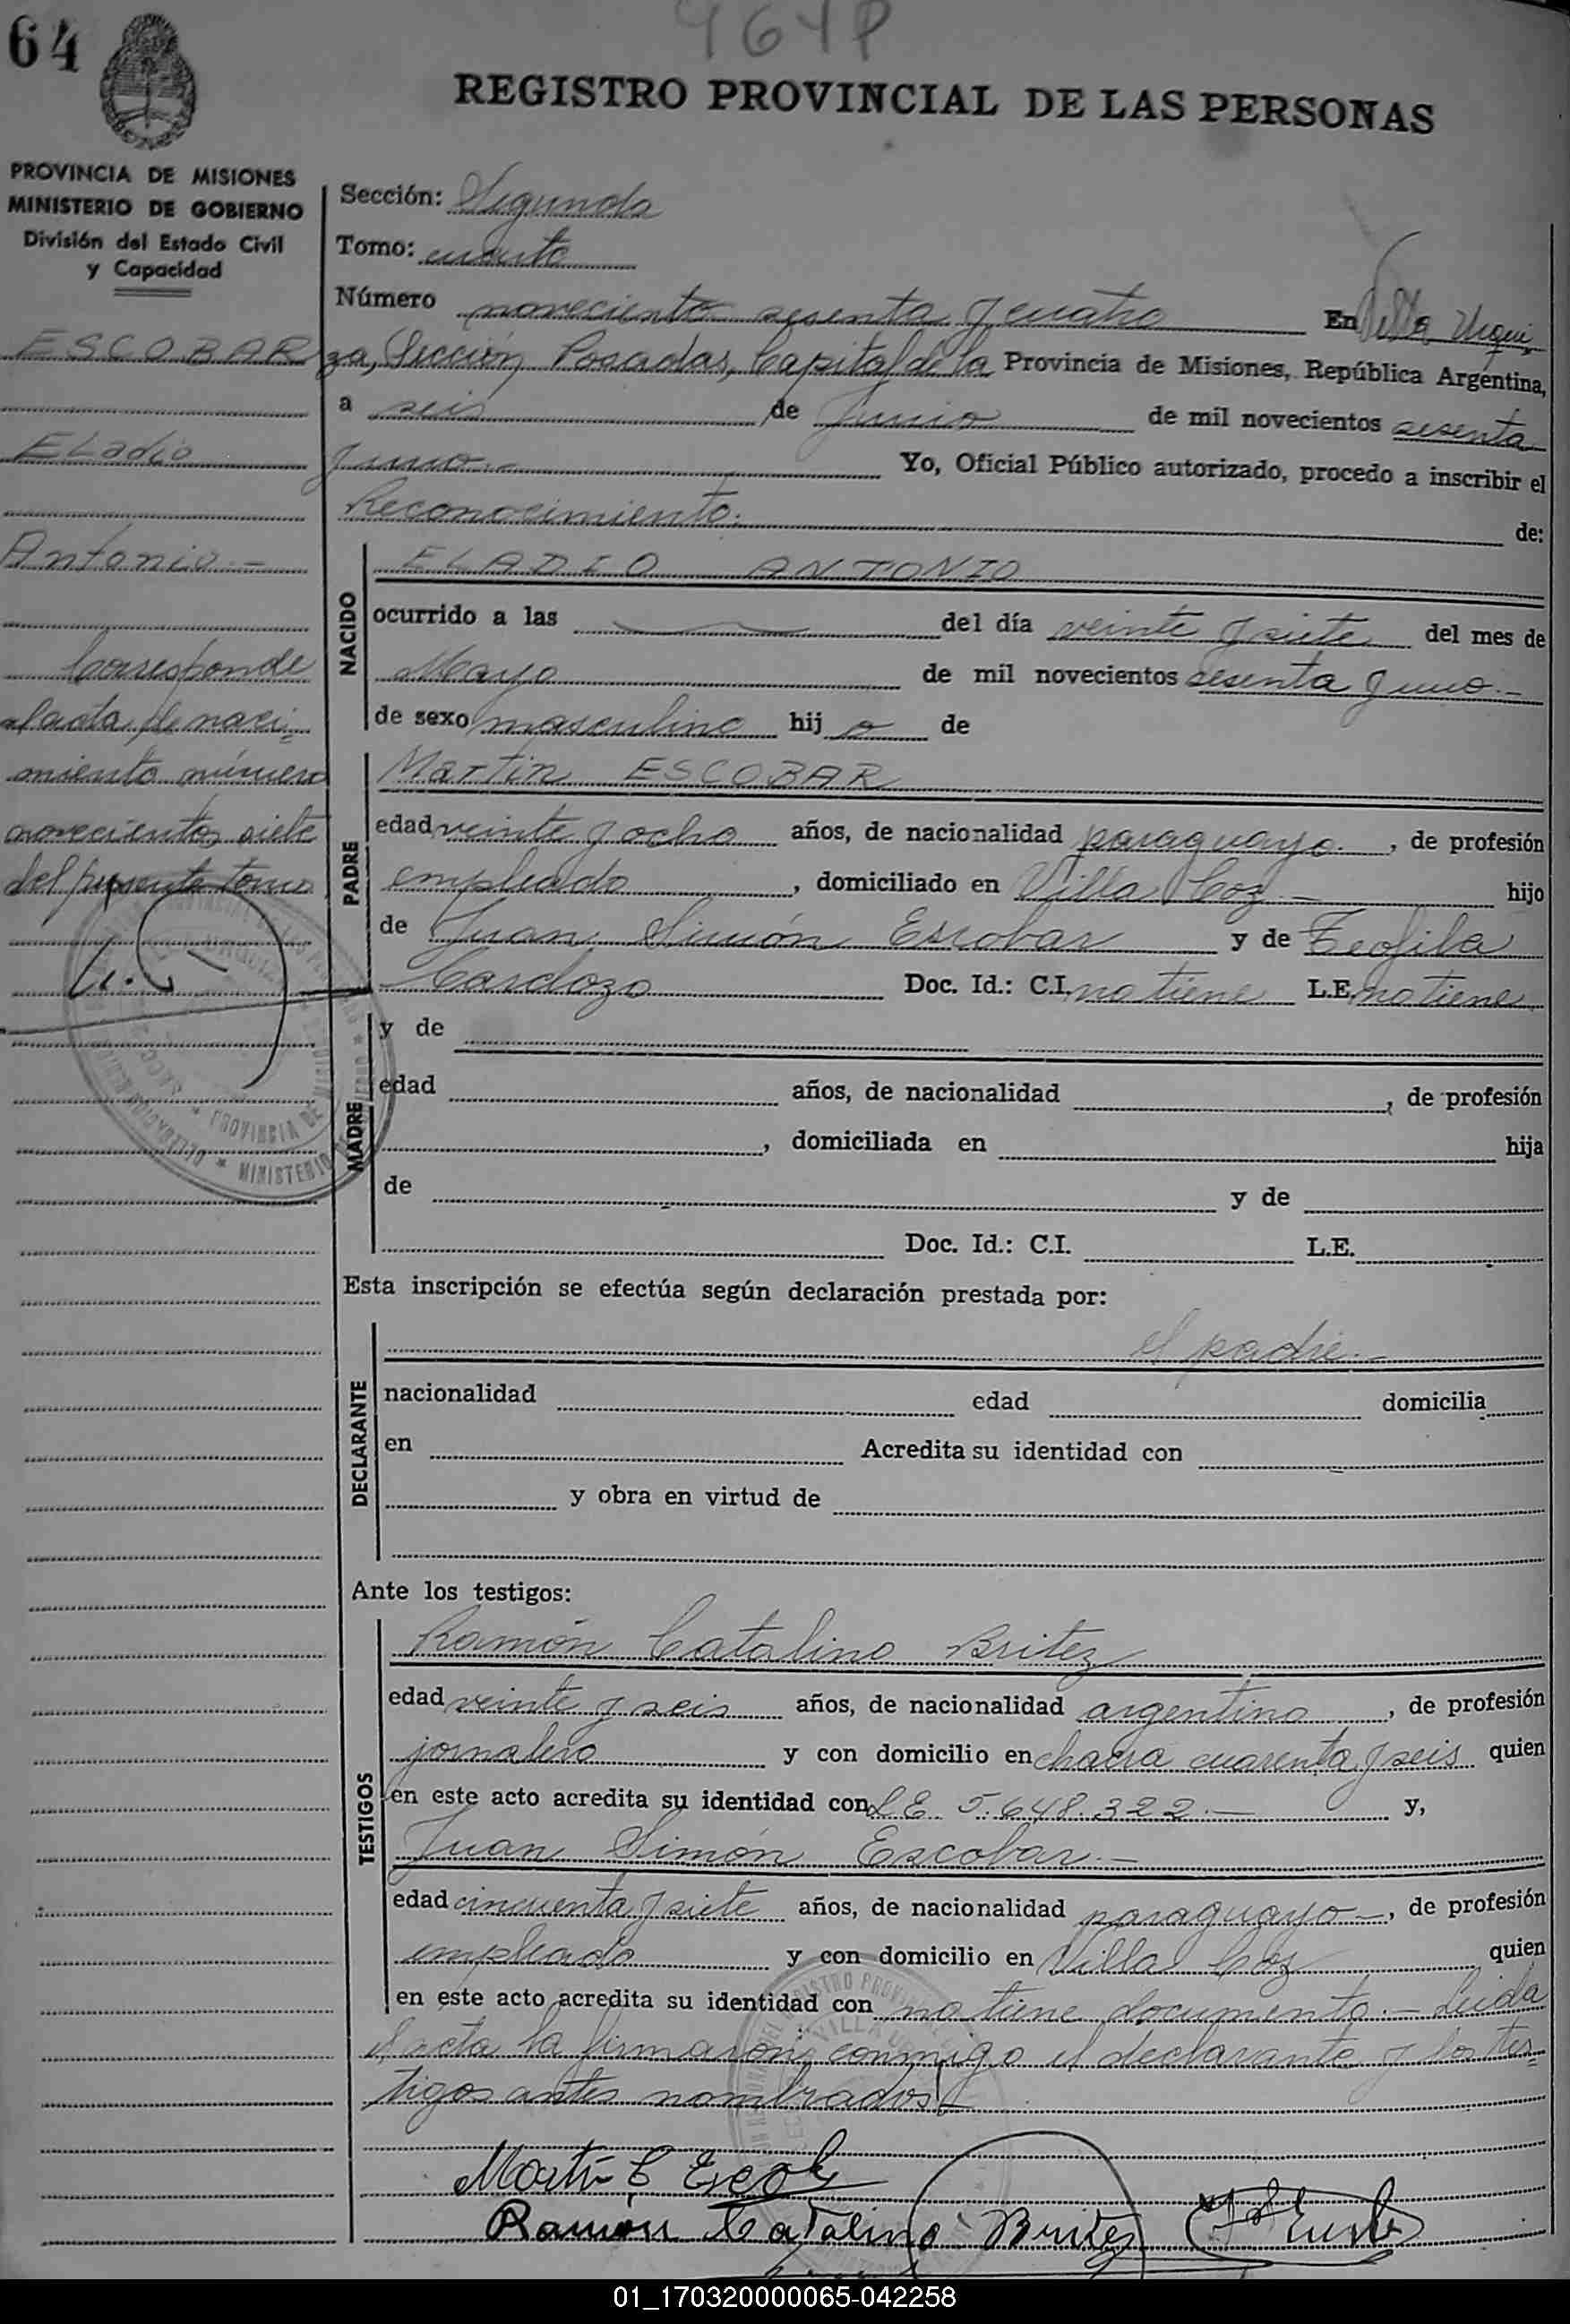 64
964P
REGISTRO PROVINCIAL DE LAS PERSONAS
PROVINCIA DE MISIONES
MINISTERIO DE GOBIERNO
División del Estado Civil
y Capacidad
ESCOBAR
Eladio
Antonio.-
Corresponde
al acta de naci=
miento número
novecientos siete
del presente tomo
Sección: Segunda
Tomo: cuarto
Número noveciento sesenta y cuatro En Villa Urqui,
za, Sección Posadas, Capital de la Provincia de Misiones, República Argentina,
a seis de Junio de mil novecientos sesenta
y uno.- Yo, Oficial Público autorizado, procedo a inscribir el
Reconocimiento. de:
NACIDO
ELADIO ANTONIO
ocurrido a las del día veinte y siete del mes de
Mayo de mil novecientos sesenta y uno.-
de sexo masculino hij o de
PADRE
Martin ESCOBAR
edad veinte y ocho años, de nacionalidad paraguayo.-, de profesión
empleado, domiciliado en Villa Coz.- hijo
de Juan Simón Escobar y de Teofila
Cardozo Doc. Id.: C.I. no tiene L.E. no tiene
MADRE
y de
edad años, de nacionalidad , de profesión
, domiciliada en hija
de y de
Doc. Id.: C.I. L.E.
Esta inscripción se efectúa según declaración prestada por:
DECLARANTE
el padre.-
nacionalidad edad domicilia
en Acredita su identidad con
y obra en virtud de
Ante los testigos:
TESTIGOS
Ramón Catalino Britez
edad veinte y seis años, de nacionalidad argentino, de profesión
jornalero y con domicilio en chacra cuarenta y seis quien
en este acto acredita su identidad con L E 5.648.322.- y,
Juan Simón Escobar.-
edad cincuenta y siete años, de nacionalidad paraguayo-, de profesión
empleado y con domicilio en Villa Coz quien
en este acto acredita su identidad con no tiene documento.- Leida
el acta la firmaron, conmigo el declarante y los tes=
tigos antes nombrados.-
Ramón Catalino Britez
01_170320000065-042258